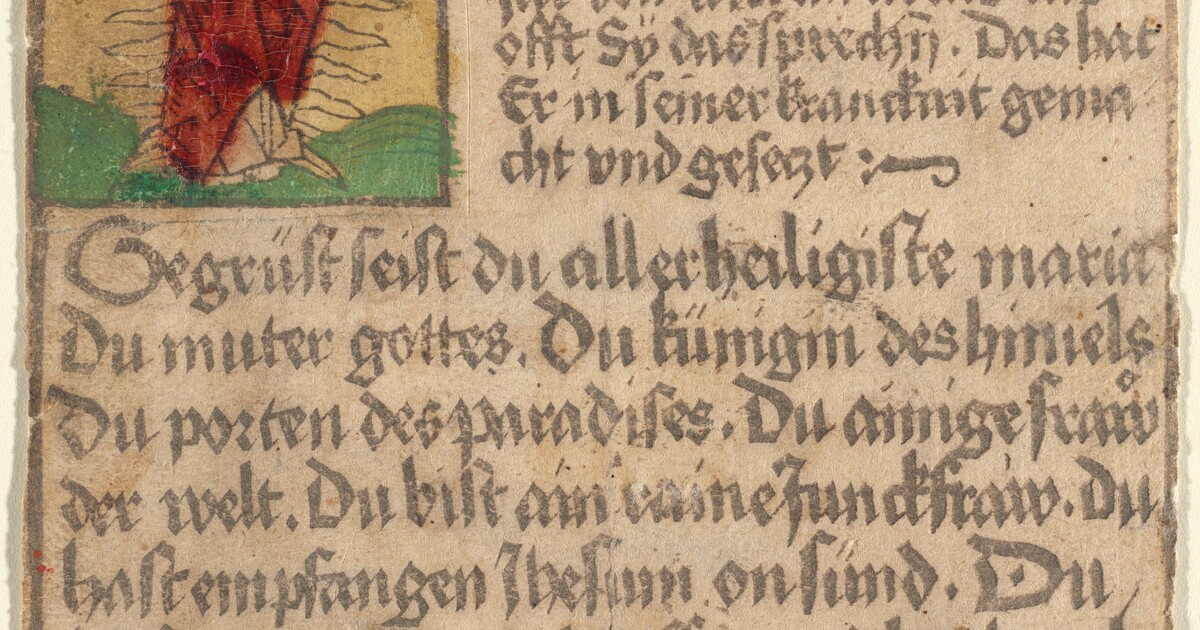 offt Sÿ das sprechñ. Das hat
Er in seiner kranckait gema
cht vnd gesetzt :~
Gegrüst seist du allerheiligiste maria
Du muter gottes. Du künigin des himels
Du porten des paradises. Du ainige frawͦ
der welt. Du bist ain raine Junckfraw. Du
hast empfangen Jhesum on sünd. Du